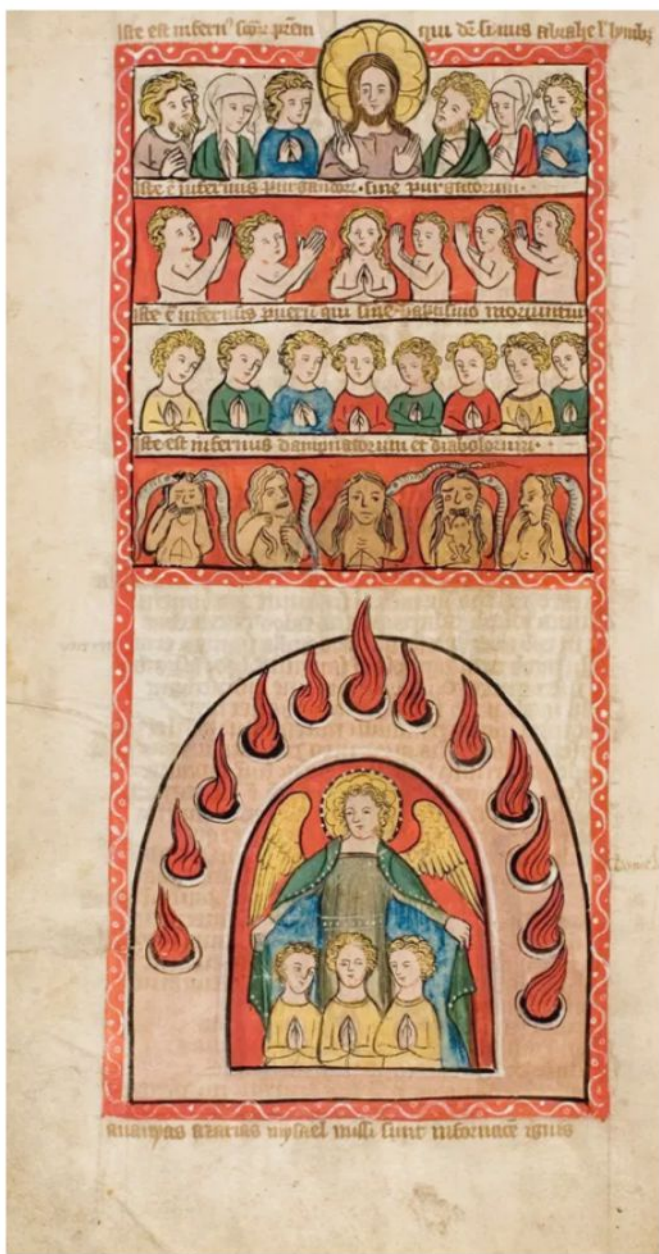 iste est infern⁹ scōr prēm qui dr̄ sinus abrahe l' lymb⁹
iste ē infernus purgandor · siue purgatorium ·
iste ē infernus pueror qui sine baptismo moriuntur
iste est infernus dampnatorum et diabolorum ·
ananyas azarias mysael missi sunt in fornacē ignis